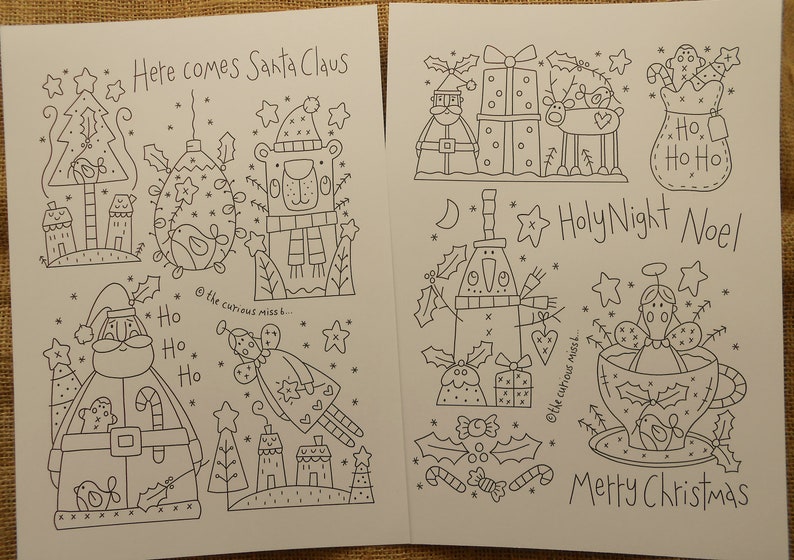 Here comes Santa Claus
© the curious miss b...
Ho
Ho
Ho
Ho
Ho Ho
Holy Night
Noel
© the curious miss b...
Merry Christmas